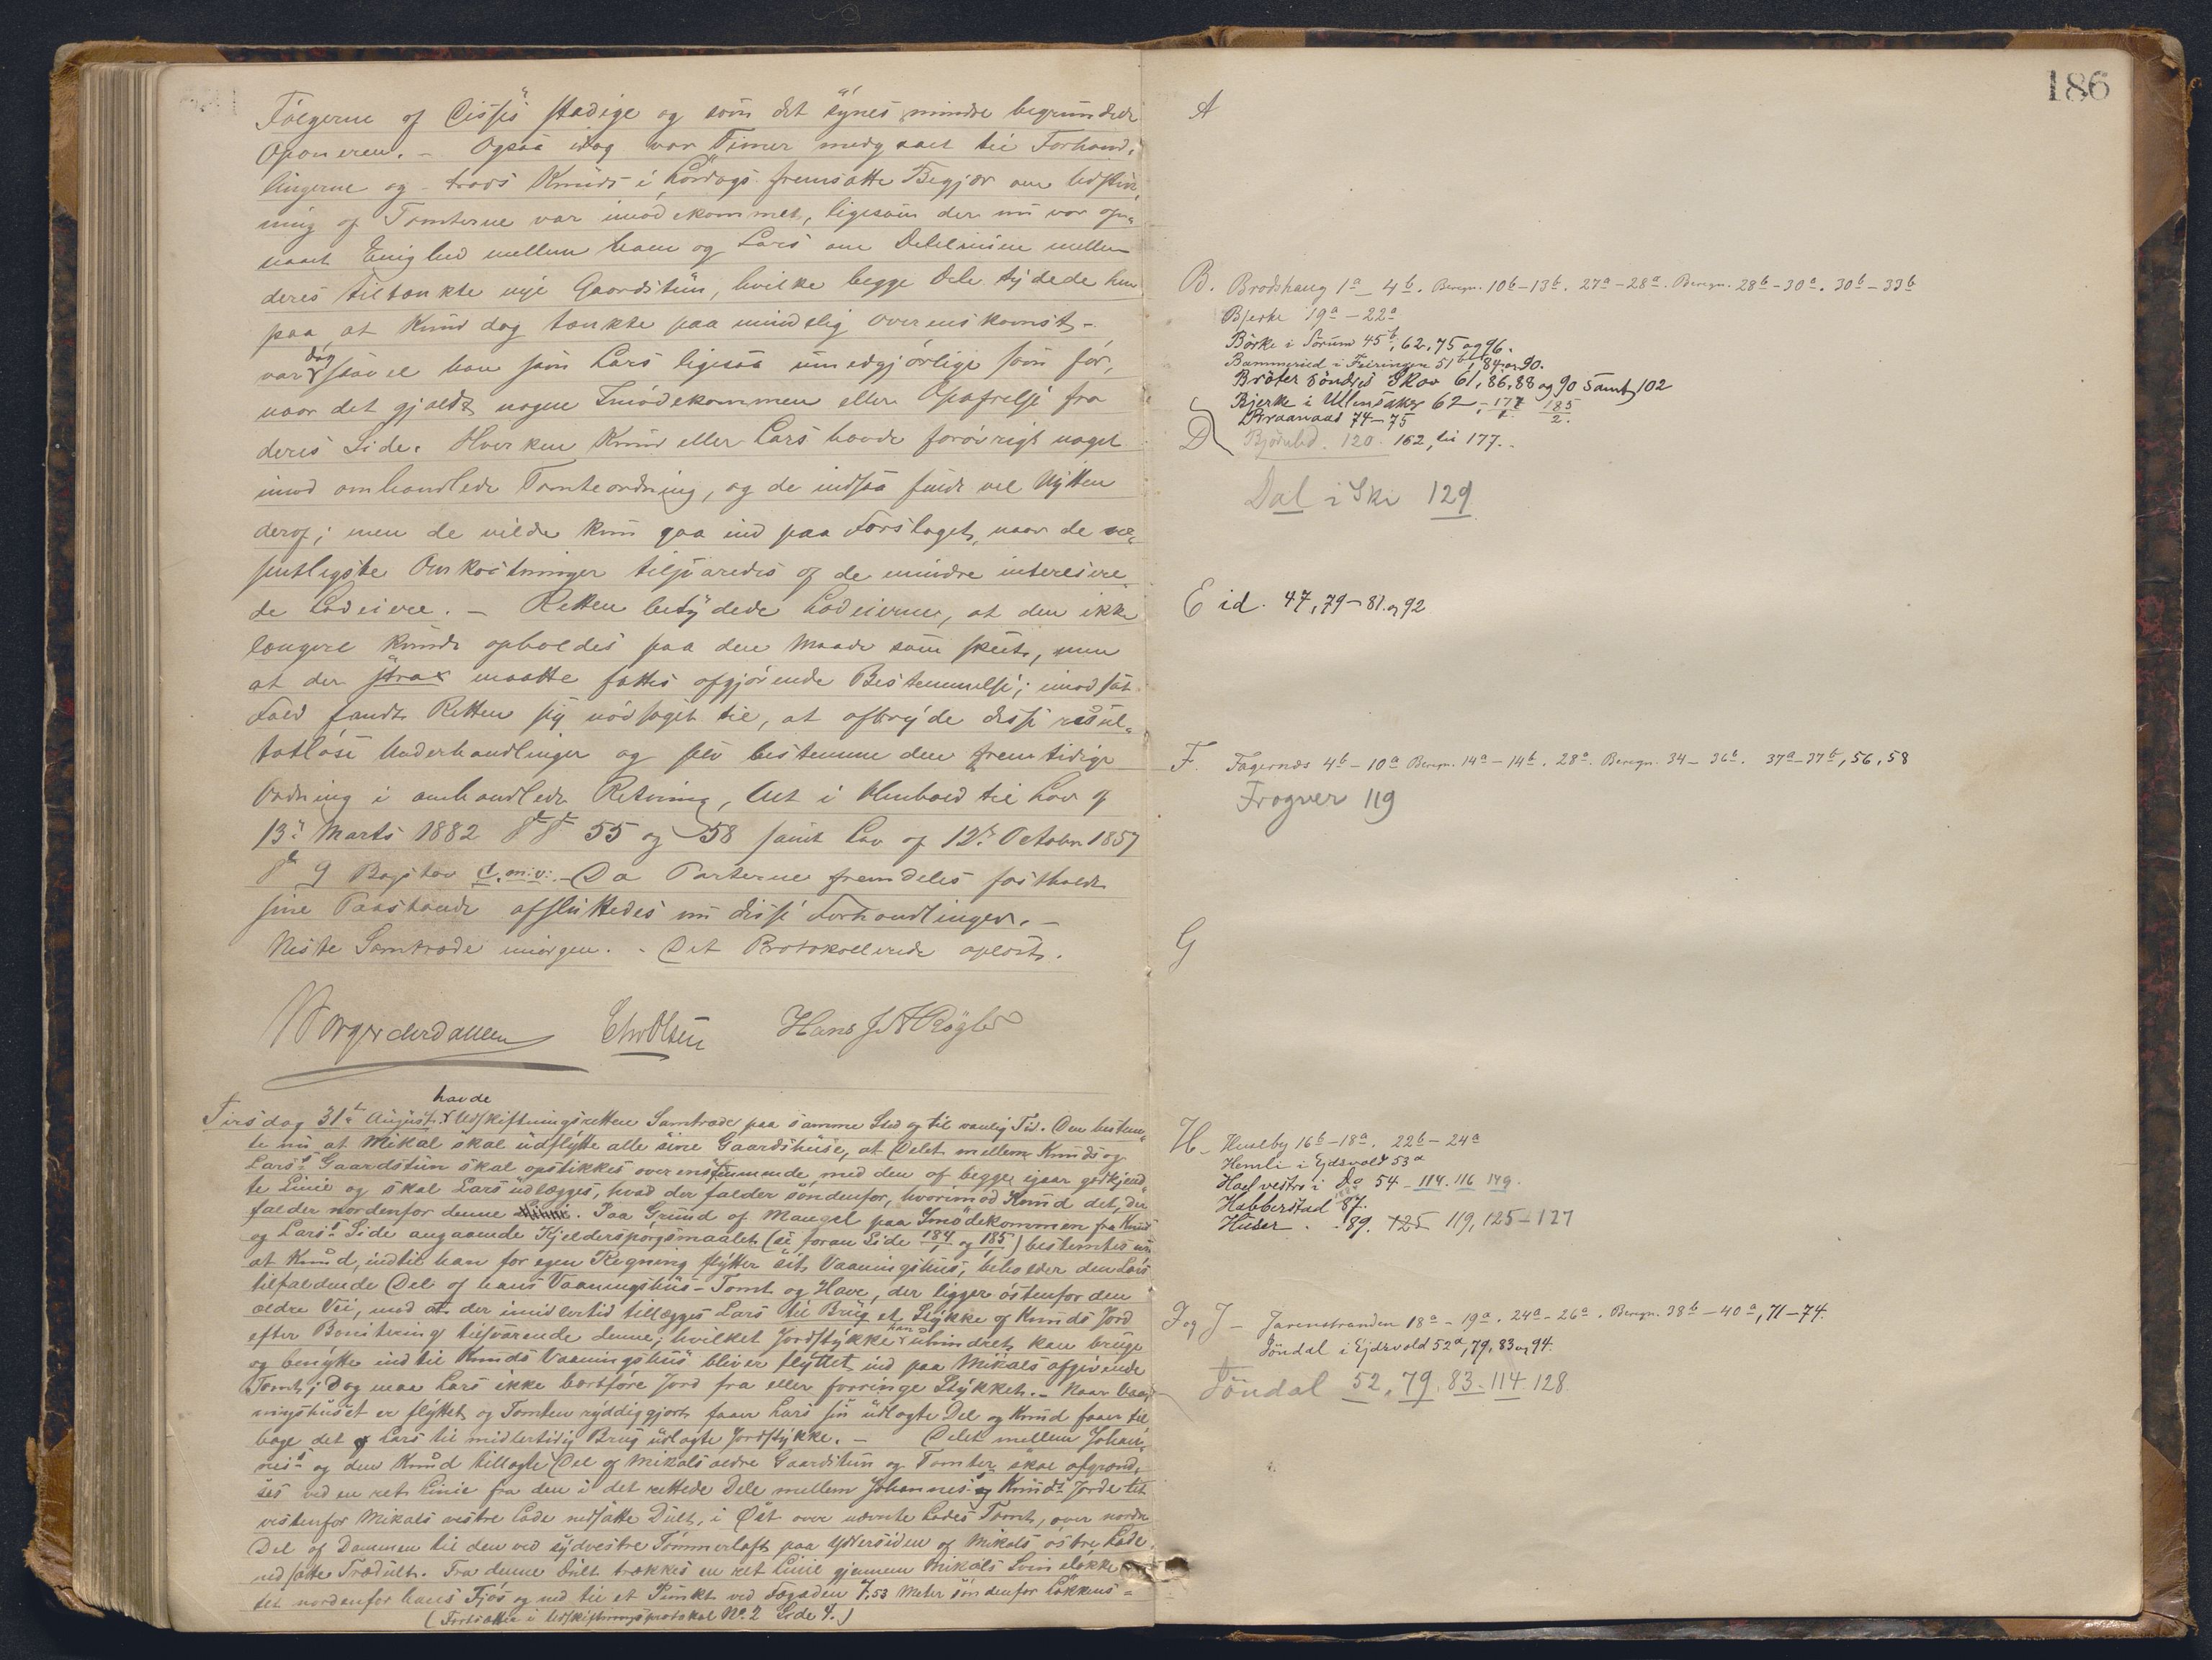 Følgerne af Disses stadige og som det synes mindre begrundede
Oponeren. - Ogsaa idag var Timer medgaaet til Forhand-
lingerne og - trods Knuds i Lørdags fremsatte Begjær om Udstik-
ning af Tomterne var imødekommet, ligesom der nu var op-
naaet Enighed mellem ham og Lars om Delelinien mellem
deres tiltænkte nye Gaardstun, hvilke begge Dele tydede hen
paa, at Knud dog tænkte paa mindelig Overenskomst -
var dog saavel han som Lars ligesaa umedgjørlige som før,
naar det gjaldt nogen Imødekommen eller Opofrelse fra
deres Side. Hverken Knud eller Lars havde forøvrigt noget
imod omhandlede Tomteordning, og de indsaa fuldt vel Nytten
deraf; men de vilde kun gaa ind paa Forslaget, naar de væ-
sentligste Omkostninger tilsvaredes af de mindre interesere-
de Lodeiere. - Retten betydede Lodeierne, at den ikke
længere kunde opholdes paa den Maade som skeet, men
at der strax maatte fattes afgjørende Bestemmelse; imodsat
Fald fandt Retten sig nødsaget til, at afbryde disse resul-
tatløse Underhandlinger og selv bestemme den fremtidige
Ordning i omhandlede Retning, Alt i Henhold til Lov af
13de Marts 1882 §§ 55 og 58 samt Lov af 12te October 1857
§ 9 Bogstav d. m. v. - Da Parterne fremdeles fastholdt
sine Paastande afsluttedes nu disse Forhandlinger. -
Næste Samtræde imorgen. - Det Protokollerede oplæst.
Chr Olsen Hans J.
Tirsdag 31te August havde Udskiftningsretten Samtræde paa samme Sted og til vanlig Tid. Den bestem-
te nu at Mikal skal udflytte alle sine Gaardshuse, at Delet mellem Knuds og
Lars's Gaardstun skal opstikkes overensstemmende med den af begge igaar godkjend-
te Linie og skal Lars udlægges, hvad der falder søndenfor, hvorimod Knud det, der
falder nordenfor denne. Paa Grund af Mangel paa Imødekommen fra Knuds
og Lars's Side angaaende Kjelderspørgsmaalet (se foran Side 184/1 og 185/1) bestemtes nu
at Knud, indtil han for egen Regning flytter sit Vaaningshus, beholder den Lars
tilfaldende Del af hans Vaaningshus-Tomt og Have, der ligger østenfor den
ældre Vei, mod at der imidlertid tillægges Lars til Brug et Stykke af Knuds Jord
efter Bonitering tilsvarende denne; hvilket Jordstykke han uhindret kan bruge
og benytte indtil Knuds Vaaningshus bliver flyttet ind paa Mikals afgivende
Tomt; dog maa Lars ikke bortføre Jord fra eller forringe Stykket. - Naar Vaa-
ningshuset er flyttet og Tomten ryddiggjort faaer Lars sin udlagte Del og Knud faaer til-
bage det af Lars til midlertidig Brug udlagte Jordstykke. - Delet mellem Johan-
nes's og den Knud tillagte Del af Mikals ældre Gaardstun og Tomter skal afgrænd-
ses ved en ret Linie fra den i det rettede Dele mellem Johannes's og Knuds Jorde tæt
vestenfor Mikals vestre Lade nedsatte Dult, i Øst over nævnte Lades Tomt, over nordre
Del af Dammen til den ved sydvestre Tømmerlaft paa Ydersiden af Mikals østre Lade
nedsatte Trædult. Fra denne Dult trækkes en ret Linie gjennem Mikals Svineløkke
tæt nordenfor hans Fjøs og ned til et Punkt ved Fægaden 7.53 Meter søndenfor Løkkens-
(Fortsættes i Udskiftningsprotokol No. 2 Side 4.)
186
A
B. Brodshaug 1a - 4b. Beregn. 10b - 13b. 27a - 28a. Beregn. 28b - 30a. 30b - 33b
Bjerke 19a - 22a
Børke i Sørum 45b, 62, 75 og 96.
Bammerud i Feiringen 51b, 84 og 90.
Bråter søndres Skov 61, 86, 88 og 90 samt 102
Bjerke i Ullensaker 62 - 177/1. 185/2.
Braanaas 74-75
D Bjørnlid. 120. 162, til 177.
Dal i Ski 129
Eid. 47, 79-81 og 92
F. Fagernæs 4b - 10a Beregn. 14a - 14b. 28a. Beregn. 34 - 36b. 37a - 37b, 56, 58
Frogner 119
G
H - Huelby 16b - 18a. 22b - 24a
Hemli i Ejdsvold 53a
Hael vestre i Do 54 - 114. 116 149.
Habberstad 87.
Huser . . 89. 125 119, 125-127
I og J - Jarenstranden 18a - 19a. 24a - 26a. Beregn. 38b - 40a, 71-74.
Jøndal i Ejdsvold 52a, 79, 83 og 94.
Jöndal 52, 79. 83 - 114. 128.